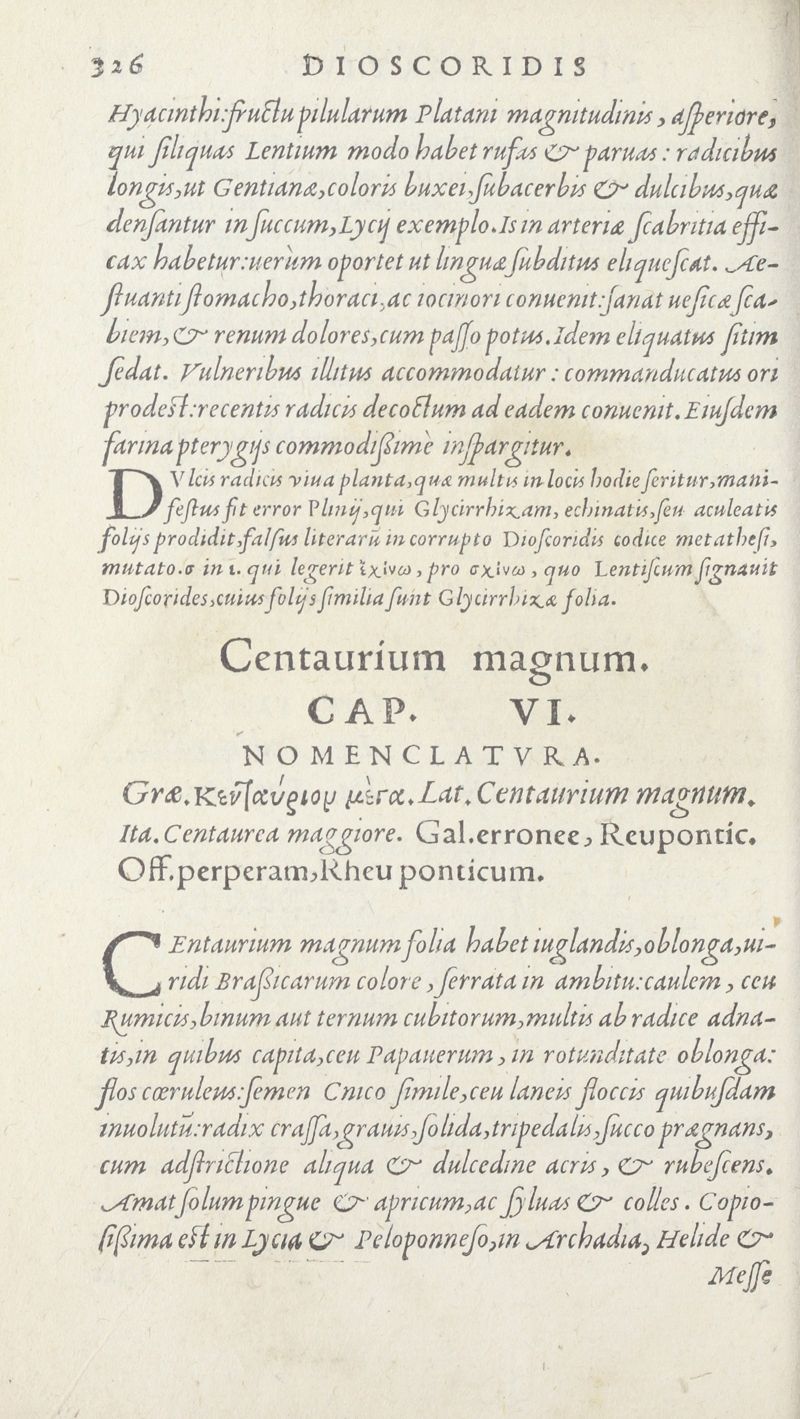 326 DIOSCORIDIS
Hyacinthi:fructu pilularum Platani magnitudinis, asperiore,
qui siliquas Lentium modo habet rufas & paruas: radicibus
longis,ut Gentianæ,coloris buxei,subacerbis & dulcibus,quæ
densantur in succum,Lycij exemplo.Is in arteriæ scabritia effi-
cax habetur:uerùm oportet ut linguæ subditus eliquescat. Ae-
stuanti stomacho,thoraci,ac iocinori conuenit:sanat uesicæ sca-
biem,& renum dolores,cum passo potus.Idem eliquatus sitim
sedat. Vulneribus illitus accommodatur: commanducatus ori
prodest:recentis radicis decoctum ad eadem conuenit.Eiusdem
farina pterygijs commodissime inspargitur.
DVlcis radicis viua planta,quæ multis in locis hodie seritur,mani-
festus fit error Plinij,qui Glycirrhizam, echinatis,seu aculeatis
folijs prodidit,falsus literarū in corrupto Dioscoridis codice metathesi,
mutato.σ in ι. qui legerit ἐχίνω, pro σχίνω, quo Lentiscum signauit
Dioscorides,cuius folijs similia sunt Glycirrhizæ folia.
Centaurium magnum.
CAP. VI.
NOMENCLATVRA.
Græ.Κενταύριον μέγα.Lat.Centaurium magnum.
Ita.Centaurea maggiore. Gal.erronee, Reupontic.
Off.perperam,Rheu ponticum.
CEntaurium magnum folia habet iuglandis,oblonga,ui-
ridi Brassicarum colore, serrata in ambitu:caulem, ceu
Rumicis,binum aut ternum cubitorum,multis ab radice adna-
tis,in quibus capita,ceu Papauerum, in rotunditate oblonga:
flos cœruleus:semen Cnico simile,ceu laneis floccis quibusdam
inuolutū:radix crassa,grauis,solida,tripedalis,succo prægnans,
cum adstrictione aliqua & dulcedine acris, & rubescens.
Amat solum pingue & apricum,ac syluas & colles. Copio-
sissima est in Lycia & Peloponneso,in Archadia, Helide &
Messe